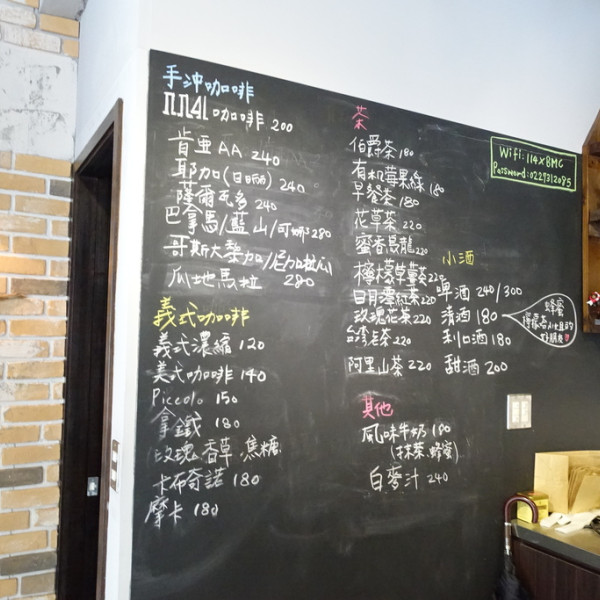 手冲咖啡
咖啡 200
肯亞AA 240
耶加(日曬) 240
薩爾瓦多 240
巴拿馬/藍山/可娜 280
哥斯大黎加/尼加拉瓜/
瓜地馬拉 280
義式咖啡
義式濃縮 120
美式咖啡 140
Piccolo 150
拿鐵 180
玫瑰 香草 焦糖
卡布奇諾 180
摩卡 180
茶
伯爵茶 180
有机莓果綠 180
早餐茶 180
花草茶 220
蜜香烏龍 220
檸檬草薑茶 220
日月潭紅茶 220
玫瑰花茶 220
台湾老茶 220
阿里山茶 220
其他
風味牛奶 180
(抹茶 蜂蜜)
白麥汁 240
小酒
啤酒 240/300
清酒 180
利口酒 180
甜酒 200
蜂蜜
Wifi: 114XBMC
Password: 0229312095